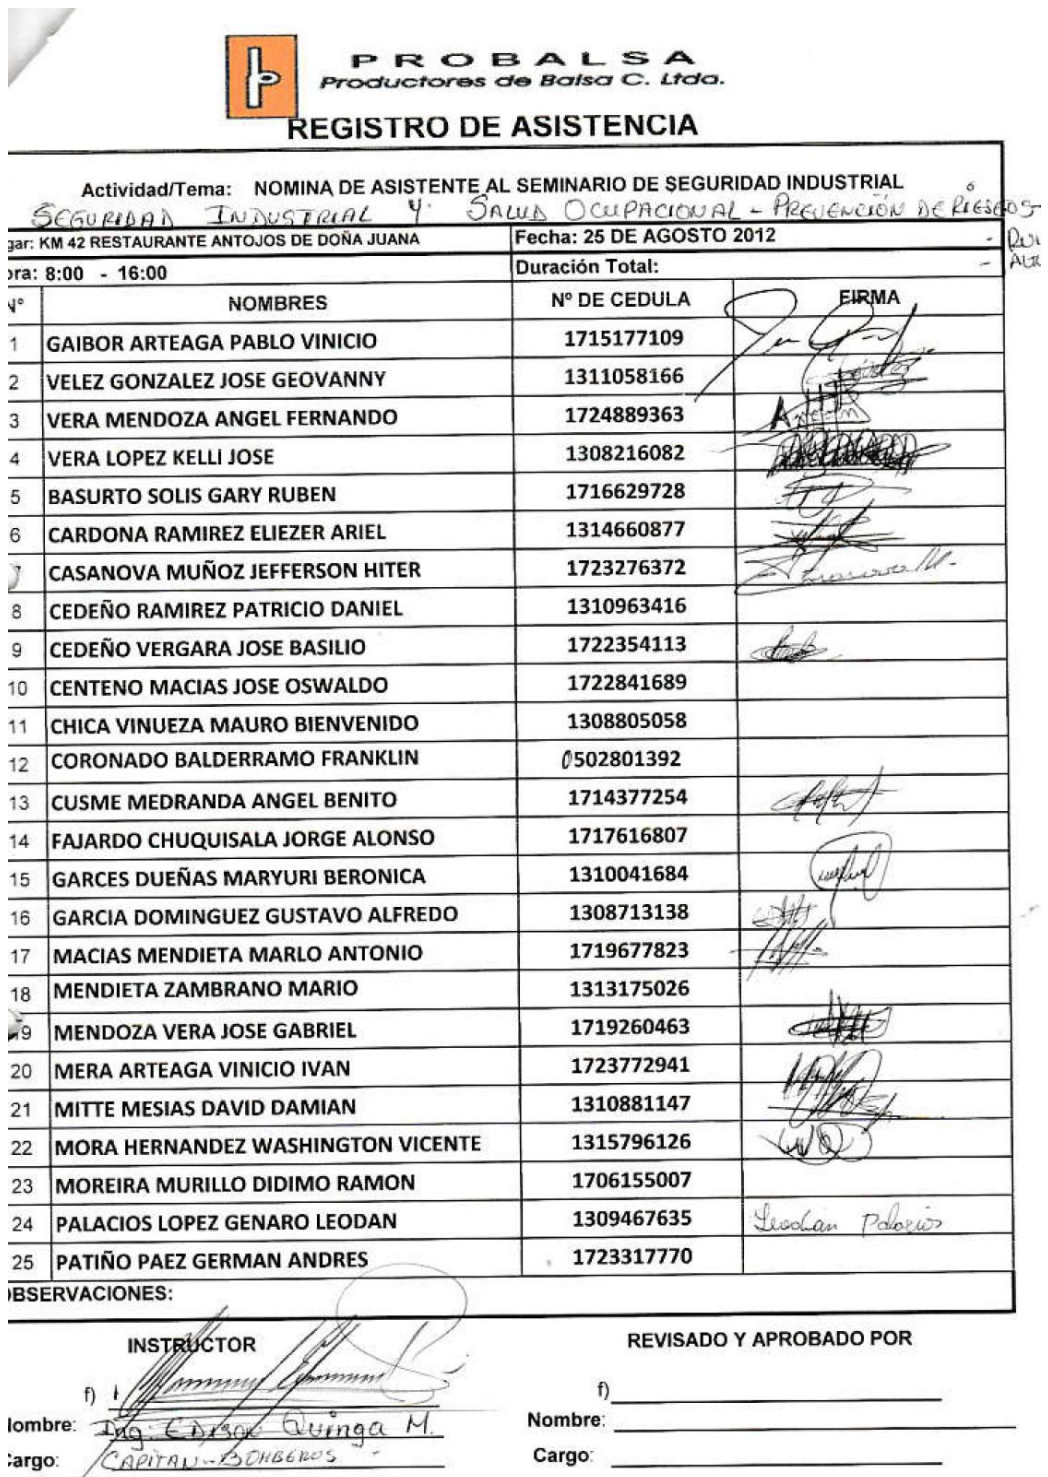 PROBALSA
Productores de Balsa C. Ltda.
REGISTRO DE ASISTENCIA
Actividad/Tema: NOMINA DE ASISTENTE AL SEMINARIO DE SEGURIDAD INDUSTRIAL
SEGURIDAD INDUSTRIAL Y SALUD OCUPACIONAL - PREVENCIÓN DE RIESGOS
gar: KM 42 RESTAURANTE ANTOJOS DE DOÑA JUANA Fecha: 25 DE AGOSTO 2012
ora: 8:00 - 16:00 Duración Total:
Nº NOMBRES Nº DE CEDULA FIRMA
1 GAIBOR ARTEAGA PABLO VINICIO 1715177109
2 VELEZ GONZALEZ JOSE GEOVANNY 1311058166
3 VERA MENDOZA ANGEL FERNANDO 1724889363
4 VERA LOPEZ KELLI JOSE 1308216082
5 BASURTO SOLIS GARY RUBEN 1716629728
6 CARDONA RAMIREZ ELIEZER ARIEL 1314660877
7 CASANOVA MUÑOZ JEFFERSON HITER 1723276372
8 CEDEÑO RAMIREZ PATRICIO DANIEL 1310963416
9 CEDEÑO VERGARA JOSE BASILIO 1722354113
10 CENTENO MACIAS JOSE OSWALDO 1722841689
11 CHICA VINUEZA MAURO BIENVENIDO 1308805058
12 CORONADO BALDERRAMO FRANKLIN 0502801392
13 CUSME MEDRANDA ANGEL BENITO 1714377254
14 FAJARDO CHUQUISALA JORGE ALONSO 1717616807
15 GARCES DUEÑAS MARYURI BERONICA 1310041684
16 GARCIA DOMINGUEZ GUSTAVO ALFREDO 1308713138
17 MACIAS MENDIETA MARLO ANTONIO 1719677823
18 MENDIETA ZAMBRANO MARIO 1313175026
19 MENDOZA VERA JOSE GABRIEL 1719260463
20 MERA ARTEAGA VINICIO IVAN 1723772941
21 MITTE MESIAS DAVID DAMIAN 1310881147
22 MORA HERNANDEZ WASHINGTON VICENTE 1315796126
23 MOREIRA MURILLO DIDIMO RAMON 1706155007
24 PALACIOS LOPEZ GENARO LEODAN 1309467635 Leodan Palacios
25 PATIÑO PAEZ GERMAN ANDRES 1723317770
OBSERVACIONES:
INSTRUCTOR REVISADO Y APROBADO POR
f) f)
Nombre: Ing. Edison Quinga M. Nombre:
Cargo: CAPITAN - BOMBEROS Cargo: